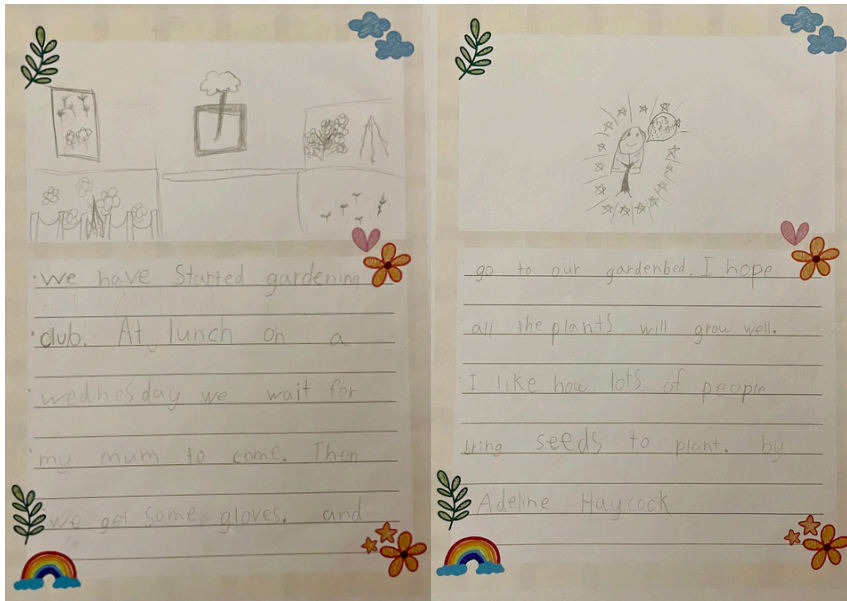 We have Started gardening
club. At lunch on a
wednesday we wait for
my mum to come. Then
we get some gloves. and
go to our gardenbed. I hope
all the plants will grow well.
I like how lots of people
bring seeds to plant. by
Adeline Haycock